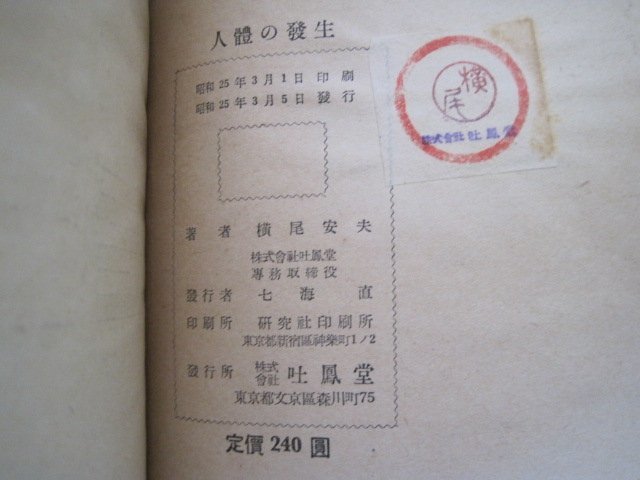 人體の發生
昭和25年3月1日 印刷
昭和25年3月5日 發行
著者 横尾安夫
株式會社吐鳳堂
專務取締役
發行者 七海直
印刷所 研究社印刷所
東京都新宿區神樂町1ノ2
發行所 株式會社 吐鳳堂
東京都文京區森川町75
定價 240 圓
横尾
株式會社吐鳳堂